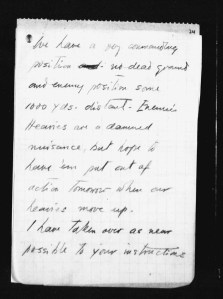 We have a very commanding
position and no dead ground
and enemy position some
1000 yds. distant - Enemies
Heavies are a damned
nuisance, but hope to
have 'em put out of
action tomorrow when our
heavies move up.
I have taken over as near
possible to your instructions